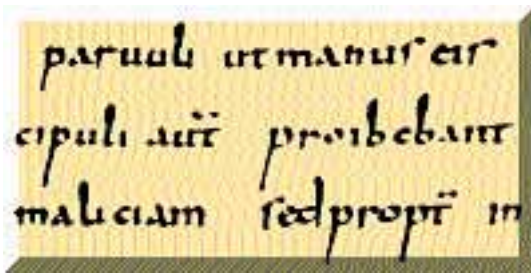 paruuli ut manus eis
cipuli aut̄ proibebant
maliciam sed propt̄ in